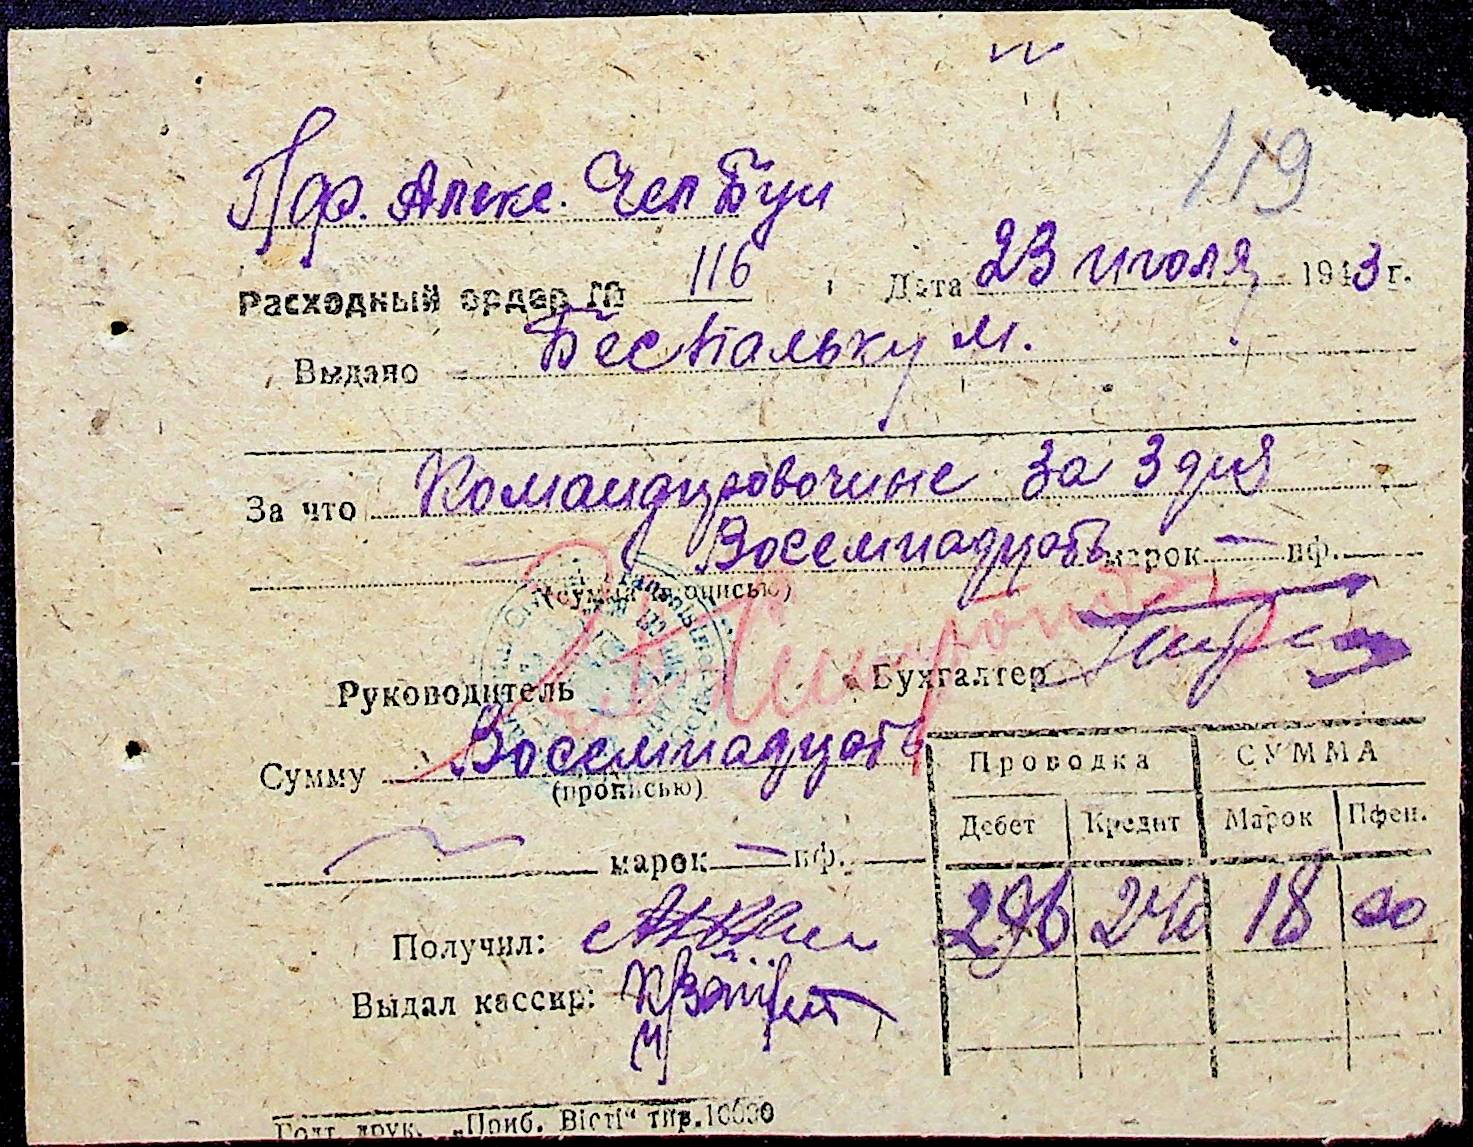 119
Пдр. Алекс. Чел Бун
Расходный ордер № 116 Дата 23 июля 1943 г.
Выдано Беспальку М.
За что Командировочные за 3 дня
Восемнадцать марок — пф.
(сумма прописью)
Руководитель Бухгалтер
Сумму Восемнадцать
(прописью)
марок — пф.
Проводка СУММА
Дебет Кредит Марок Пфен.
296 240 18 00
Получил:
Выдал кассир:
Голт. друк. „Приб. Вісті“ тир. 10000